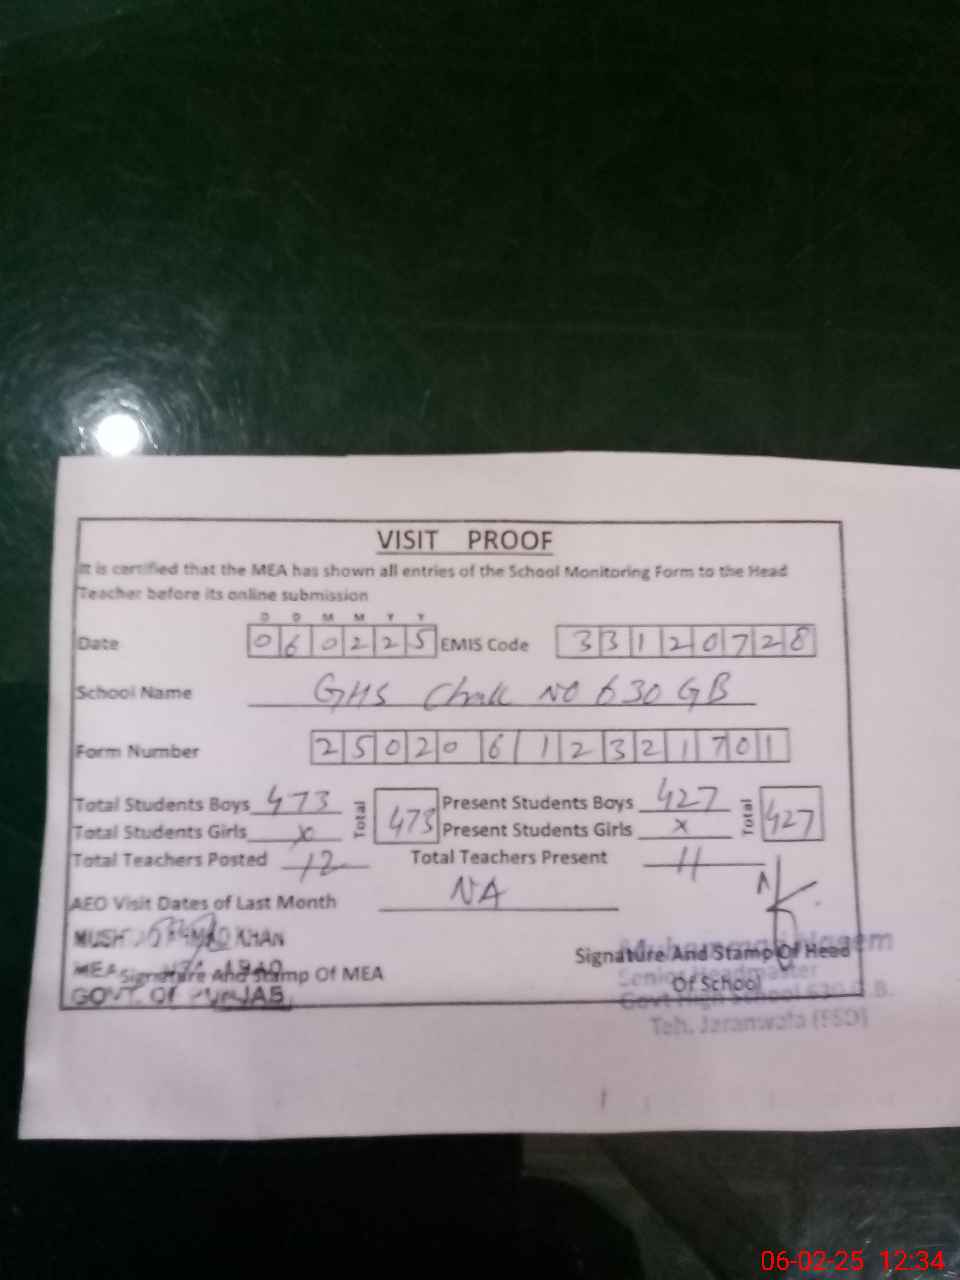 VISIT PROOF
It is certified that the MEA has shown all entries of the School Monitoring Form to the Head
Teacher before its online submission
D D M M Y Y
Date 060225 EMIS Code 33120728
School Name GHS Chak NO 630 GB
Form Number 25020612321701
Total Students Boys 473 Total 473 Present Students Boys 427 Total 427
Total Students Girls x Present Students Girls x
Total Teachers Posted 12 Total Teachers Present 11
AEO Visit Dates of Last Month NA
KHAN
MEA
Signature And Stamp Of MEA
GOVT. OF PUNJAB
Signature And Stamp Of Head
Of School
Senior Headmaster
Govt High School 630 G.B.
Teh. Jaranwala (FSD)
06-02-25 12:34